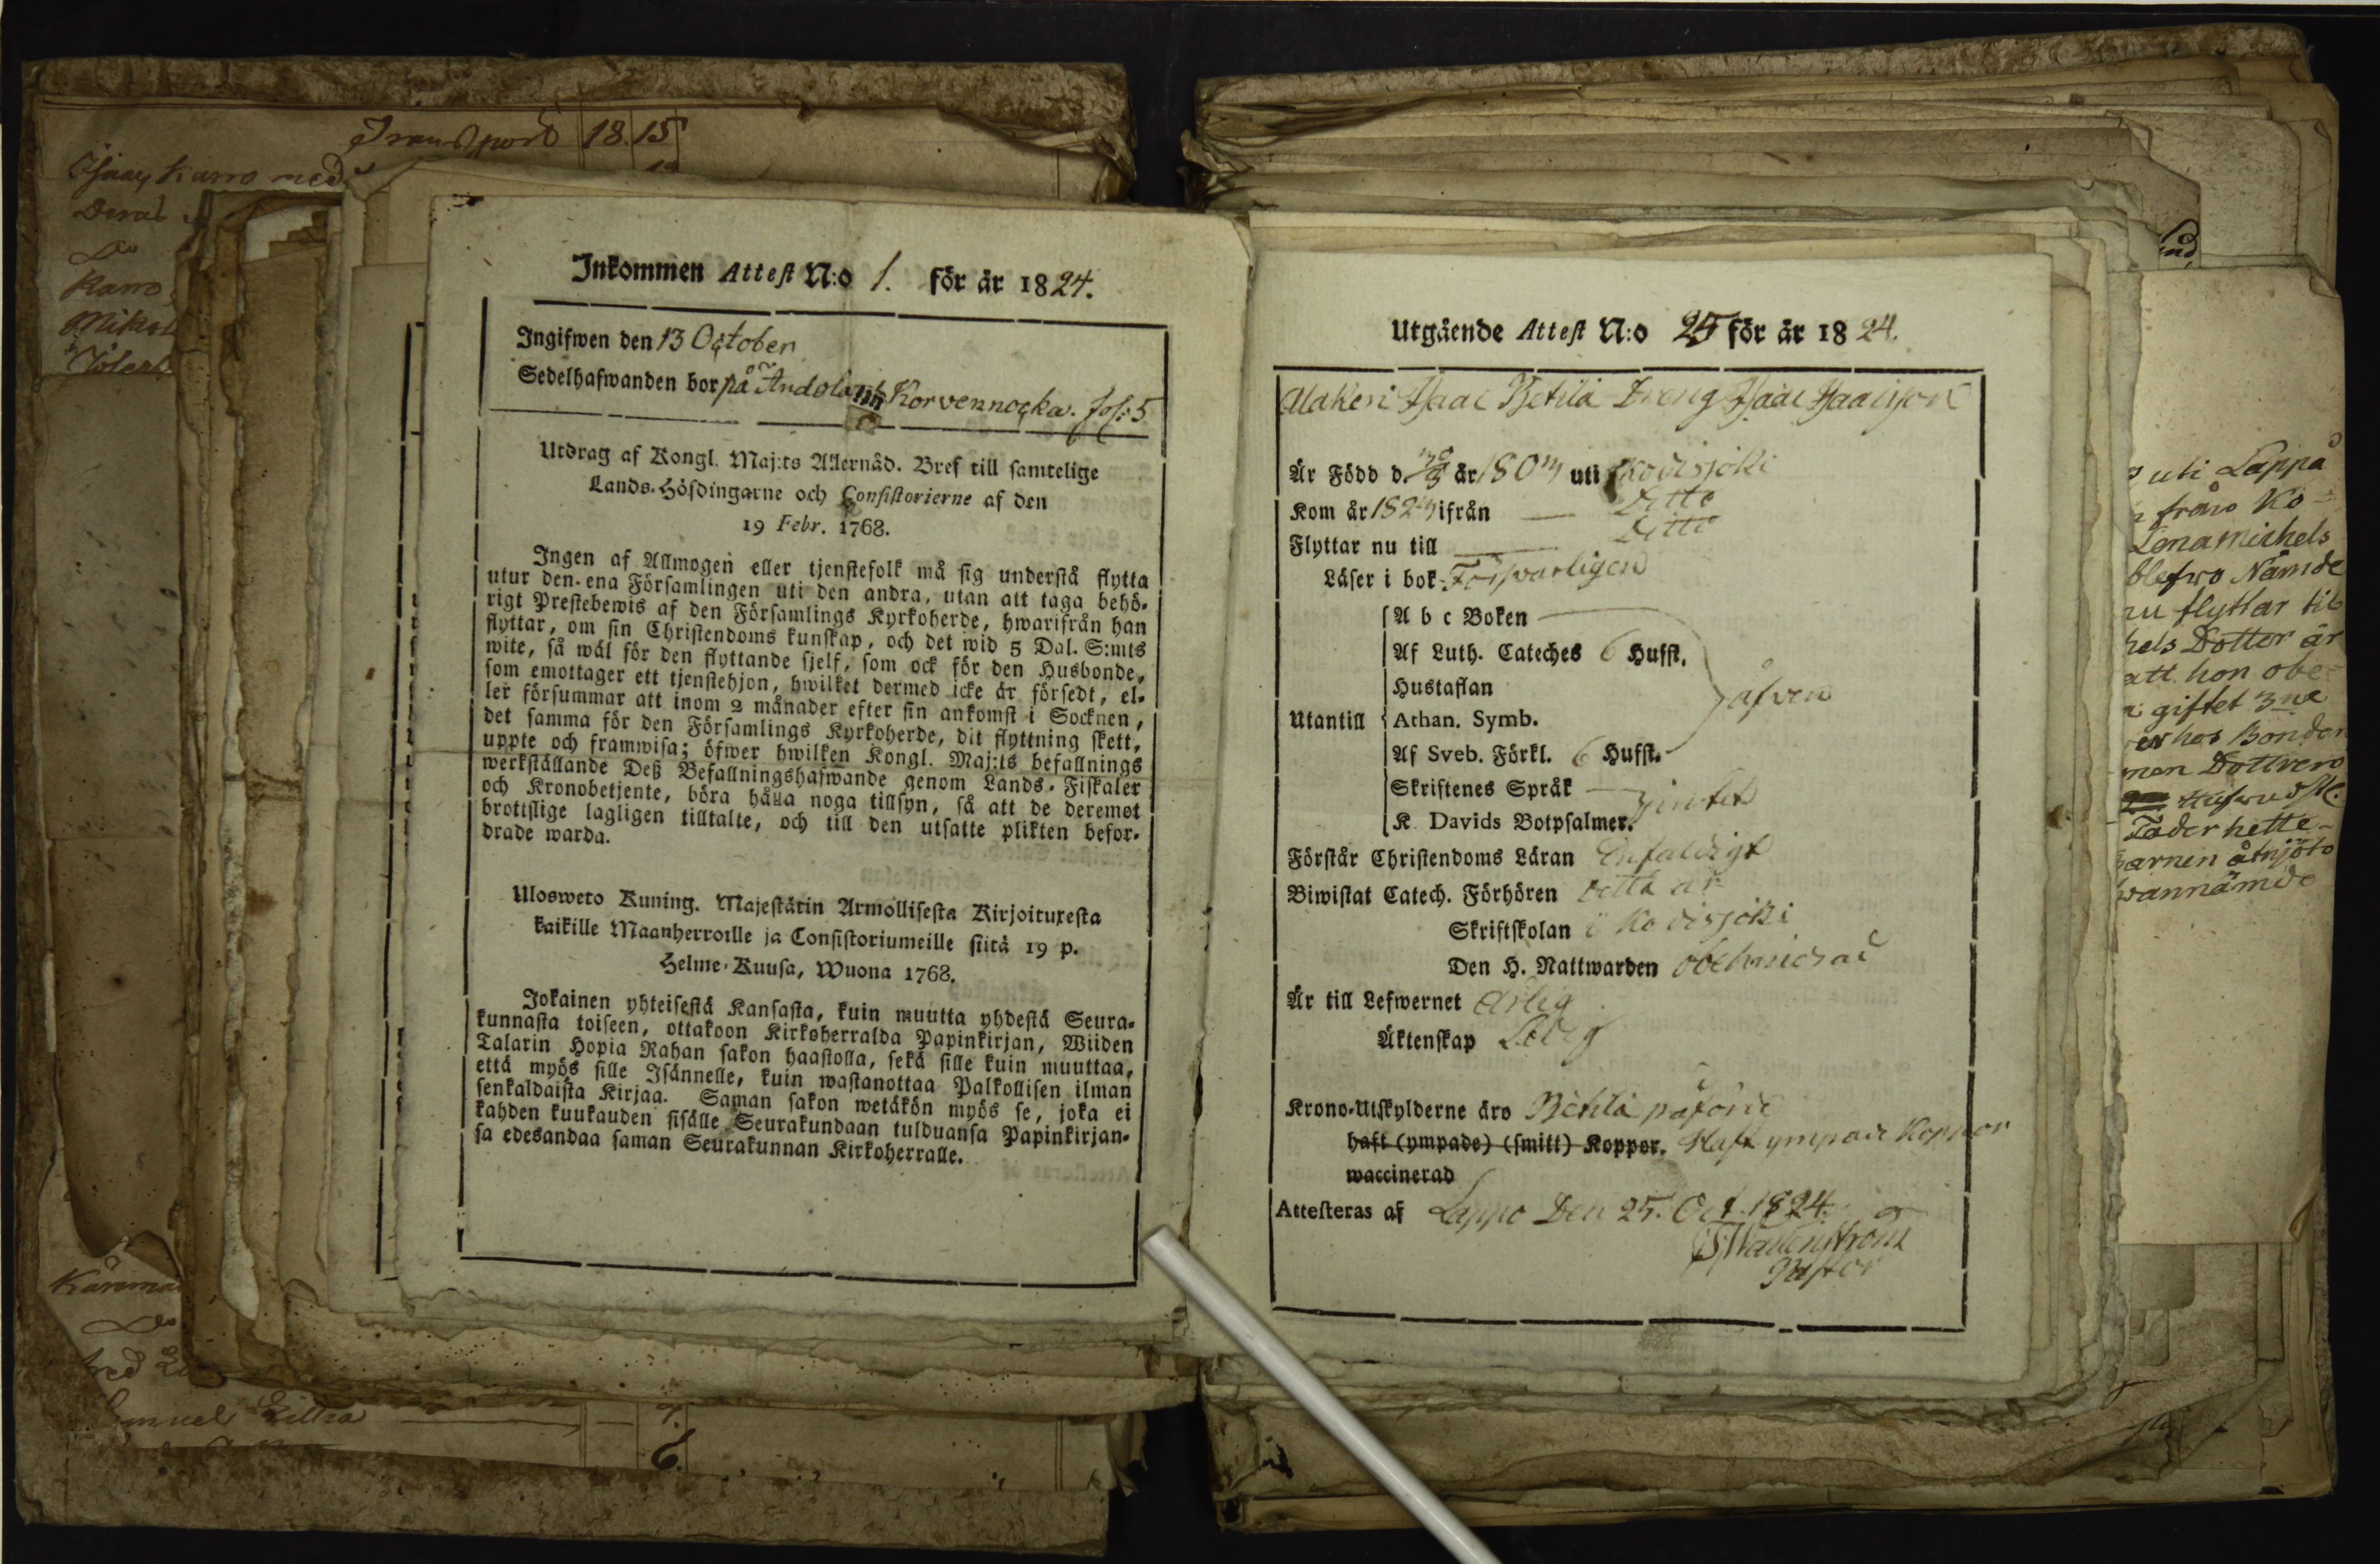 Transport 18. 15
med
Deras
Do
Karro
Inkommen Attest N:o 1. för år 1824.
Ingifwen den 13 October
Sedelhafwanden bor på Korvennocka. fol: 5
Utdrag af Kongl. Maj:ts Allernåd. Bref till samtelige
Lands-Höfdingarne och Consistorierne af den
19 Febr. 1768.
Ingen af Allmogen eller tjenstefolk må sig understå flytta
utur den ena Församlingen uti den andra, utan att taga behö-
rigt Prestebewis af den Församlings Kyrkoherde, hwarifrån han
flyttar, om sin Christendoms kunskap, och det wid 5 Dal. S:mts
wite, så wäl för den flyttande sjelf, som ock för den Husbonde,
som emottager ett tjenstehjon, hwilket dermed icke är försedt, el-
ler försummar att inom 2 månader efter sin ankomst i Socknen,
det samma för den Församlings Kyrkoherde, dit flyttning skett,
uppte och framwisa; öfwer hwilken Kongl. Maj:ts befallnings
werkställande Deß Befallningshafwande genom Lands-Fiskaler
och Kronobetjente, böra hålla noga tillsyn, så att de deremot
brottslige lagligen tilltalte, och till den utsatte plikten befor-
drade warda.
Ulosweto Kuning. Majestätin Armollisesta Kirjoituxesta
kaikille Maanherroille ja Consistoriumeille siitä 19 p.
Helme-Kuusa, Wuona 1768.
Jokainen yhteisestä Kansasta, kuin muutta yhdestä Seura-
kunnasta toiseen, ottakoon Kirkoherralda Papinkirjan, Wiiden
Talarin Hopia Rahan sakon haastolla, sekä sille kuin muuttaa,
että myös sille Isännelle, kuin wastanottaa Palkollisen ilman
senkaldaista Kirjaa. Saman sakon wetäkön myös se, joka ei
kahden kuukauden sisälle Seurakundaan tulduansa Papinkirjan-
sa edesandaa saman Seurakunnan Kirkoherralle.
Do
7.
6.
Utgående Attest N:o 25 för år 1824.
Isaac Betilä Dreng Isaac Isaacsson
Är Född d. år 180 uti
Kom år 182 ifrån — Ditto
Flyttar nu till — Ditto
Läser i bok Försvarligen
A b c Boken
Af Luth. Cateches 6 Hufst.
Hustaflan
Utantill Athan. Symb. äfven
Af Sveb. Förkl. 6 Hufst.
Skriftenes Språk
K. Davids Botpsalmer. intet
Förstår Christendoms Läran Enfaldigt
Biwistat Catech. Förhören detta år
Skriftskolan i
Den H. Nattwarden obehindrad
Är till Lefwernet Ärlig
Äktenskap Ledig
Krono-Utskylderne äro Betilä påförd
haft (ympade) (smitt) Koppor. Haft ympade Koppor
waccinerad
Attesteras af Lappo Den 25. Oct. 1824.
Pastor
uti Lappå
från Ko-
Lena Michels
blefwo Nämde
nu flyttar til
hels Dotter är
att hon obe-
giftet 3ne
hos Bonden
Fader hette
arnen åtnjöto
wannämde